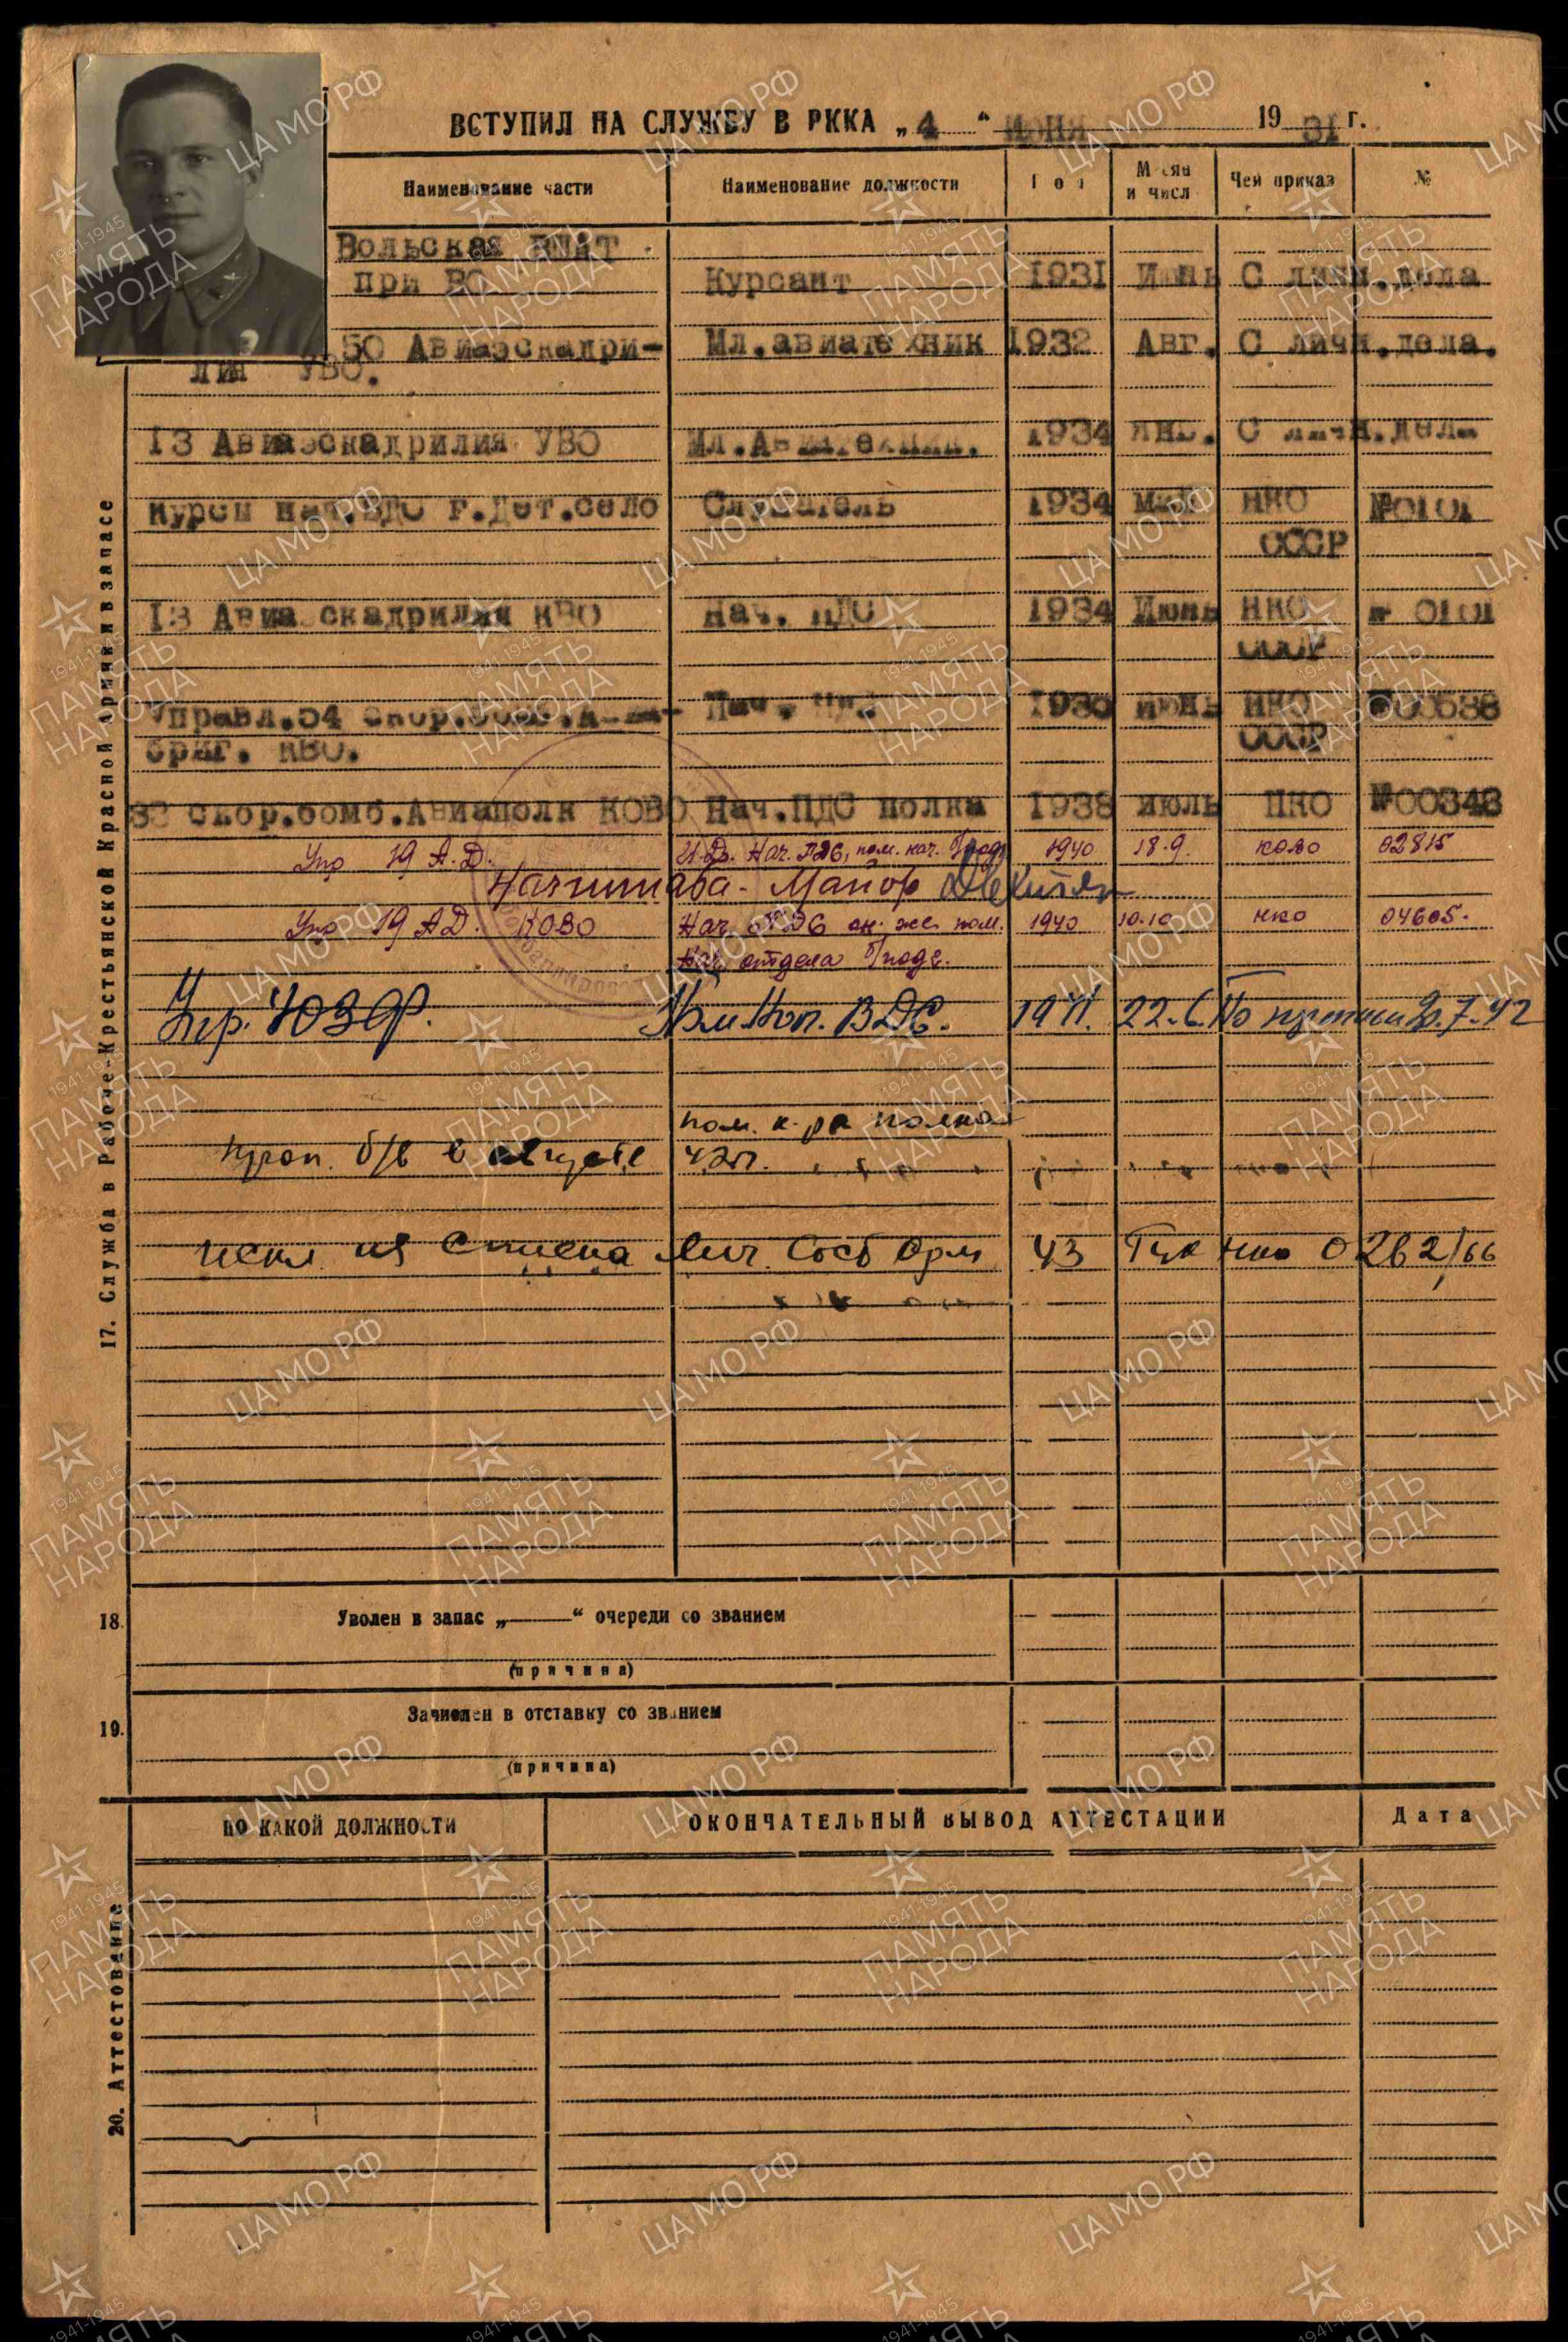 ВСТУПИЛ НА СЛУЖБУ В РККА „4“ июня 1931 г.
Наименование части Наименование должности Год Месяц и числ Чей приказ №
Вольская
при ВО Курсант 1931 Июнь С личн.дела
50 Авиаэскадри- Мл.авиатехник 1932 Авг. С личн.дела.
лия УВО.
13 Авиаэскадрилия УВО Мл.Авиатехник. 1934 янв. С личн.дела
Курсы Нач.ПДС г.Дет.село Слушатель 1934 май НКО №0101
СССР
13 Авиаэскадрилия КВО Нач. ПДС 1934 Июнь НКО № 0101
СССР
Управл.54 скор.бомб.Авиа- Нач. июнь НКО
бриг. КВО. СССР
скор.бомб.Авиаполк КОВО Нач.ПДС полка 1938 июль НКО №00343
Упр 19 А.Д. И.Д. Нач. ПДС, пом. нач. 1940 18.9. КОВО 02815
Начштаба - Майор
Упр 19 АД. КОВО Нач. ПДС он же пом. 1940 10.10 НКО 04605.
Нач. отдела б/подг.
Упр. ЮЗФ. ВДС. 1941. 22.6. По 7.42
пом. к-ра полка
проп. б/в в августе 42г.
искл из списка Лич. Сост Арм 43 Гук нко 0262/66
17. Служба в Рабоче-Крестьянской Красной армии и в запасе
18. Уволен в запас „——“ очереди со званием
(причина)
19. Зачислен в отставку со званием
(причина)
ПО КАКОЙ ДОЛЖНОСТИ ОКОНЧАТЕЛЬНЫЙ ВЫВОД АТТЕСТАЦИИ Дата
20. Аттестование
ЦА МО РФ
1941-1945
ПАМЯТЬ
НАРОДА